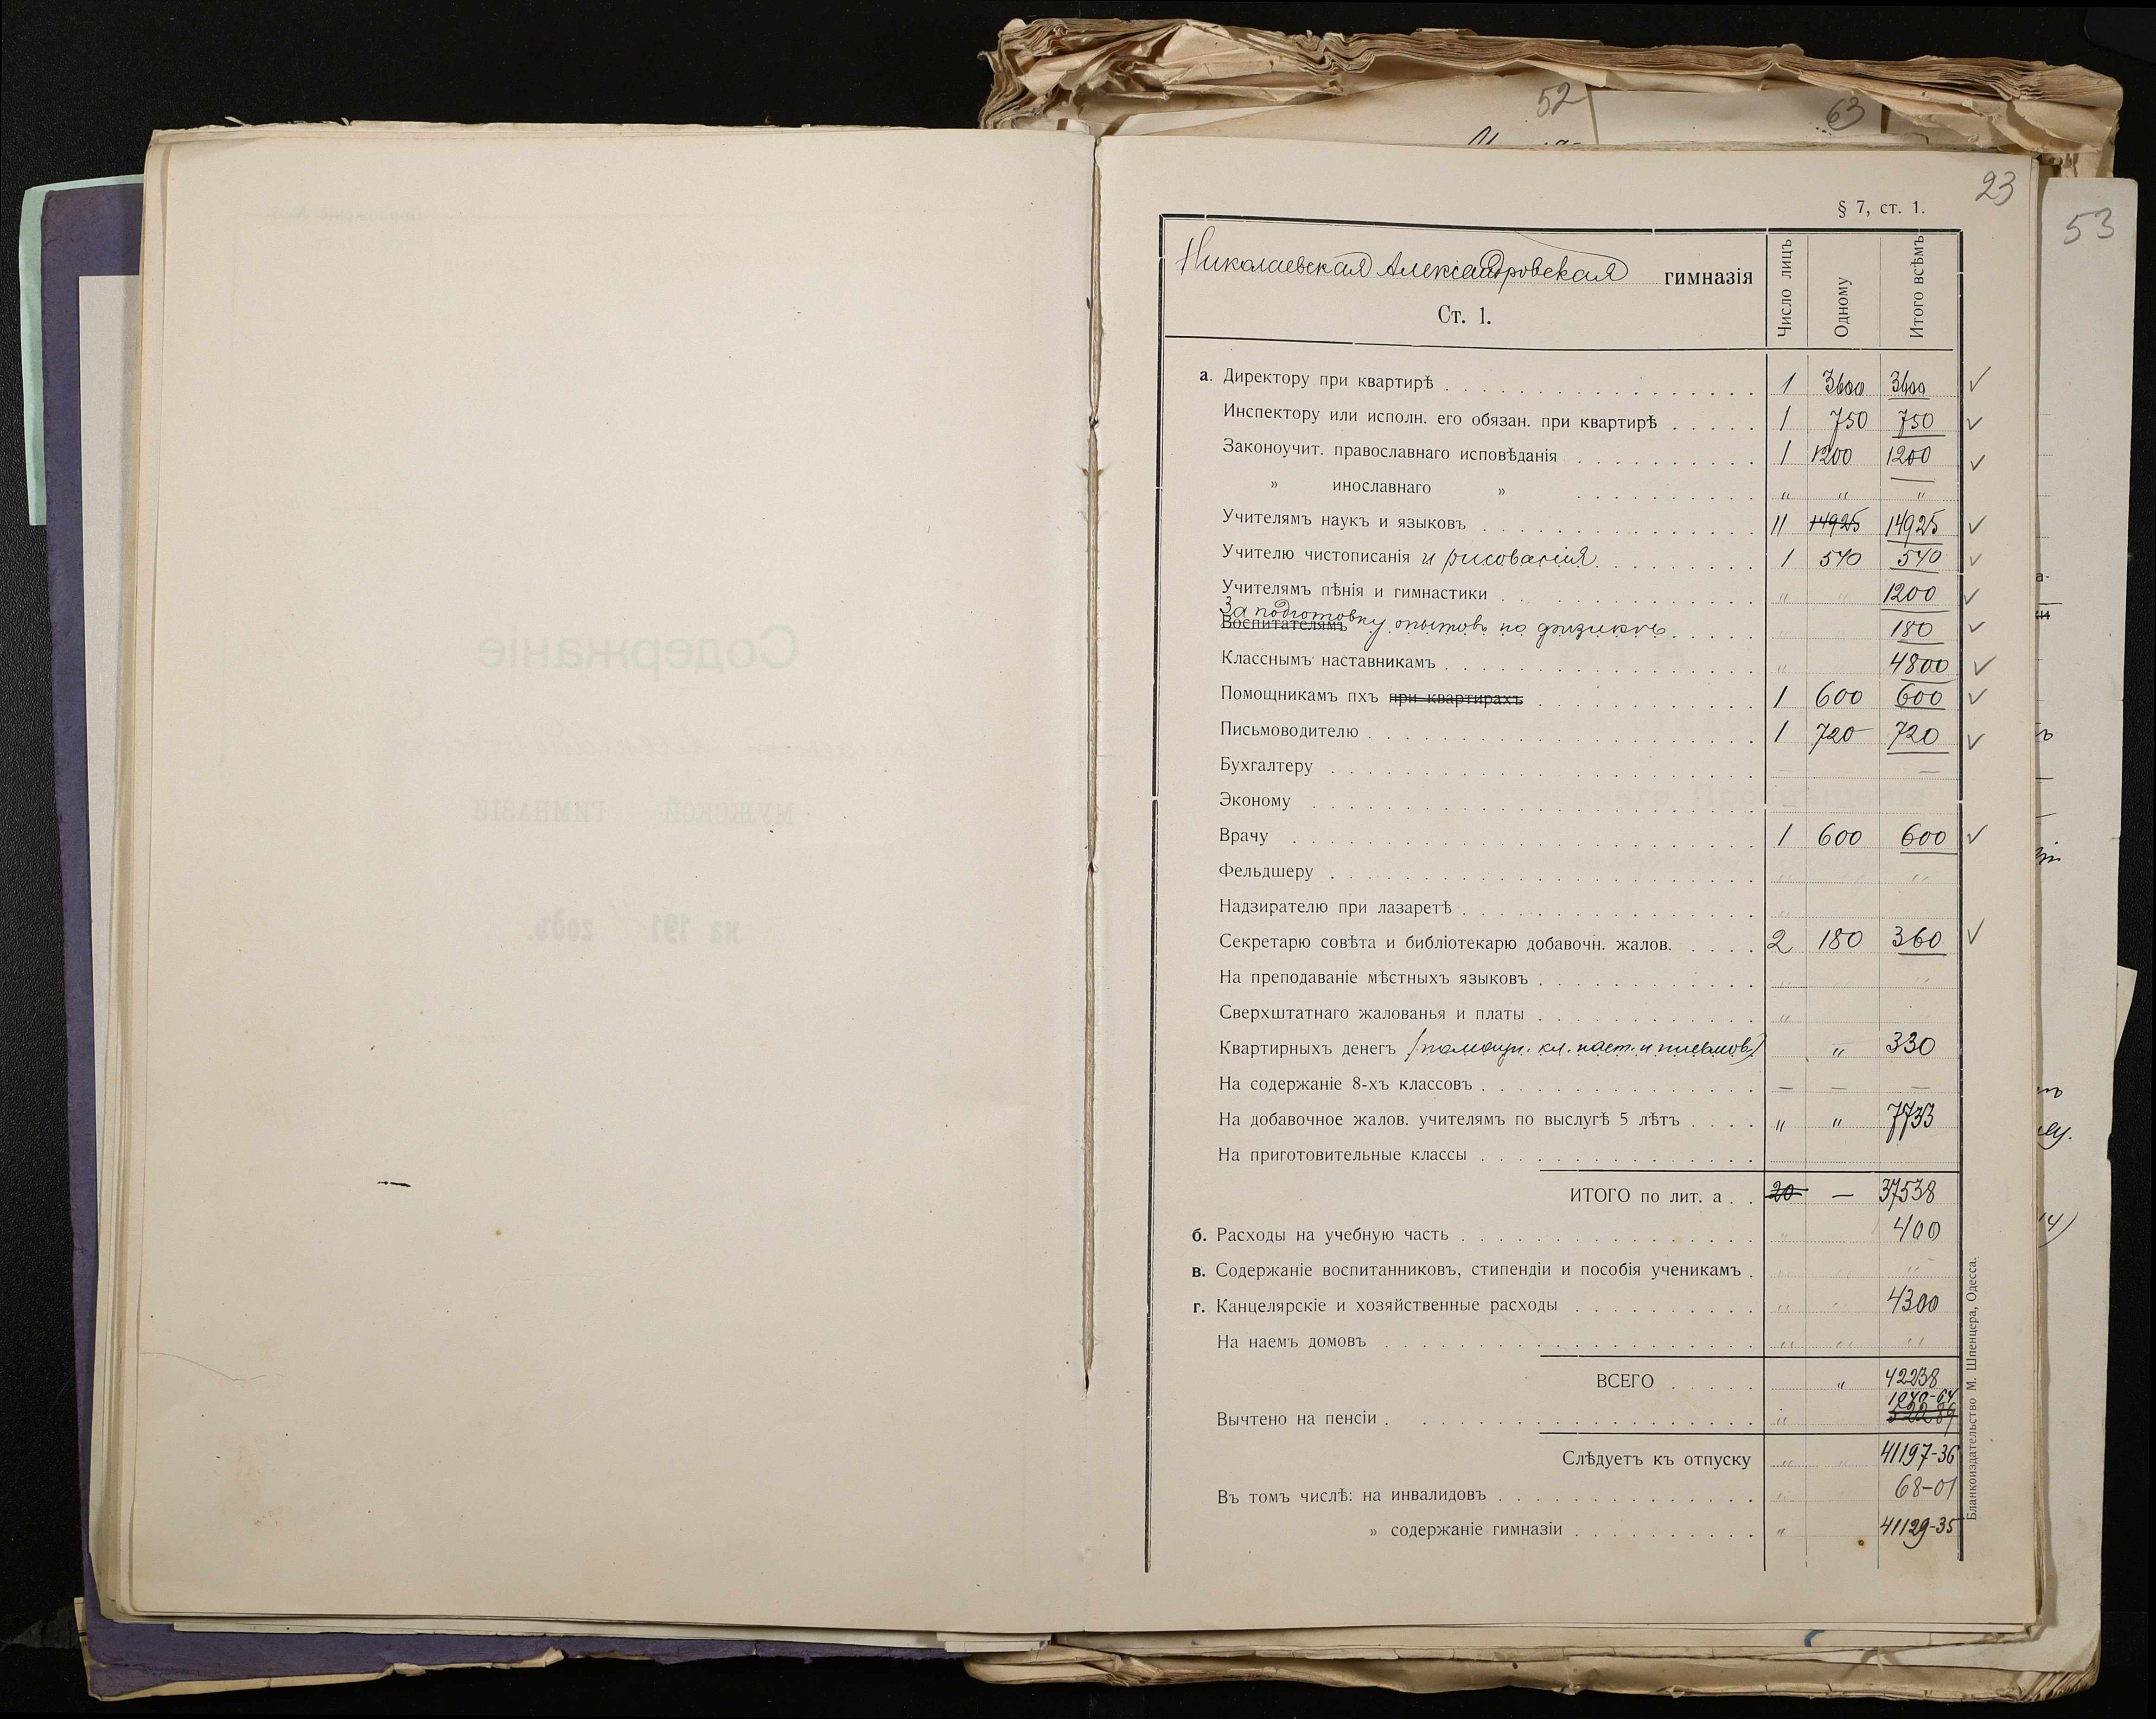 52
63
23
53
§ 7, ст. 1.
Николаевская Александровская гимназія
Ст. 1.
Число лицъ
Одному
Итого всѣмъ
а. Директору при квартирѣ 1 3600 3600
Инспектору или исполн. его обязан. при квартирѣ 1 750 750
Законоучит. православнаго исповѣданія 1 1200 1200
» инославнаго » " " "
Учителямъ наукъ и языковъ 11 14925 14925
Учителю чистописанія и рисованія 1 540 540
Учителямъ пѣнія и гимнастики " " 1200
За подготовку опытовъ по физикѣ 180
Воспитателямъ
Класснымъ наставникамъ " 4800
Помощникамъ ихъ при квартирахъ 1 600 600
Письмоводителю 1 720 720
Бухгалтеру
Эконому
Врачу 1 600 600
Фельдшеру
Надзирателю при лазаретѣ
Секретарю совѣта и библіотекарю добавочн. жалов. 2 180 360
На преподаваніе мѣстныхъ языковъ
Сверхштатнаго жалованья и платы "
Квартирныхъ денегъ (помощн. кл. наст. и письмов.) " 330
На содержаніе 8-хъ классовъ — — —
На добавочное жалов. учителямъ по выслугѣ 5 лѣтъ " " 7733
На приготовительные классы
ИТОГО по лит. а 20 — 37538
б. Расходы на учебную часть 400
в. Содержаніе воспитанниковъ, стипендіи и пособія ученикамъ
г. Канцелярскіе и хозяйственные расходы 4300
На наемъ домовъ " " "
ВСЕГО " 42238
1040-64
Вычтено на пенсіи
Слѣдуетъ къ отпуску 41197-36
Въ томъ числѣ: на инвалидовъ 68-01
» содержаніе гимназіи " 41129-35
Бланкоиздательство М. Шпенцера, Одесса.